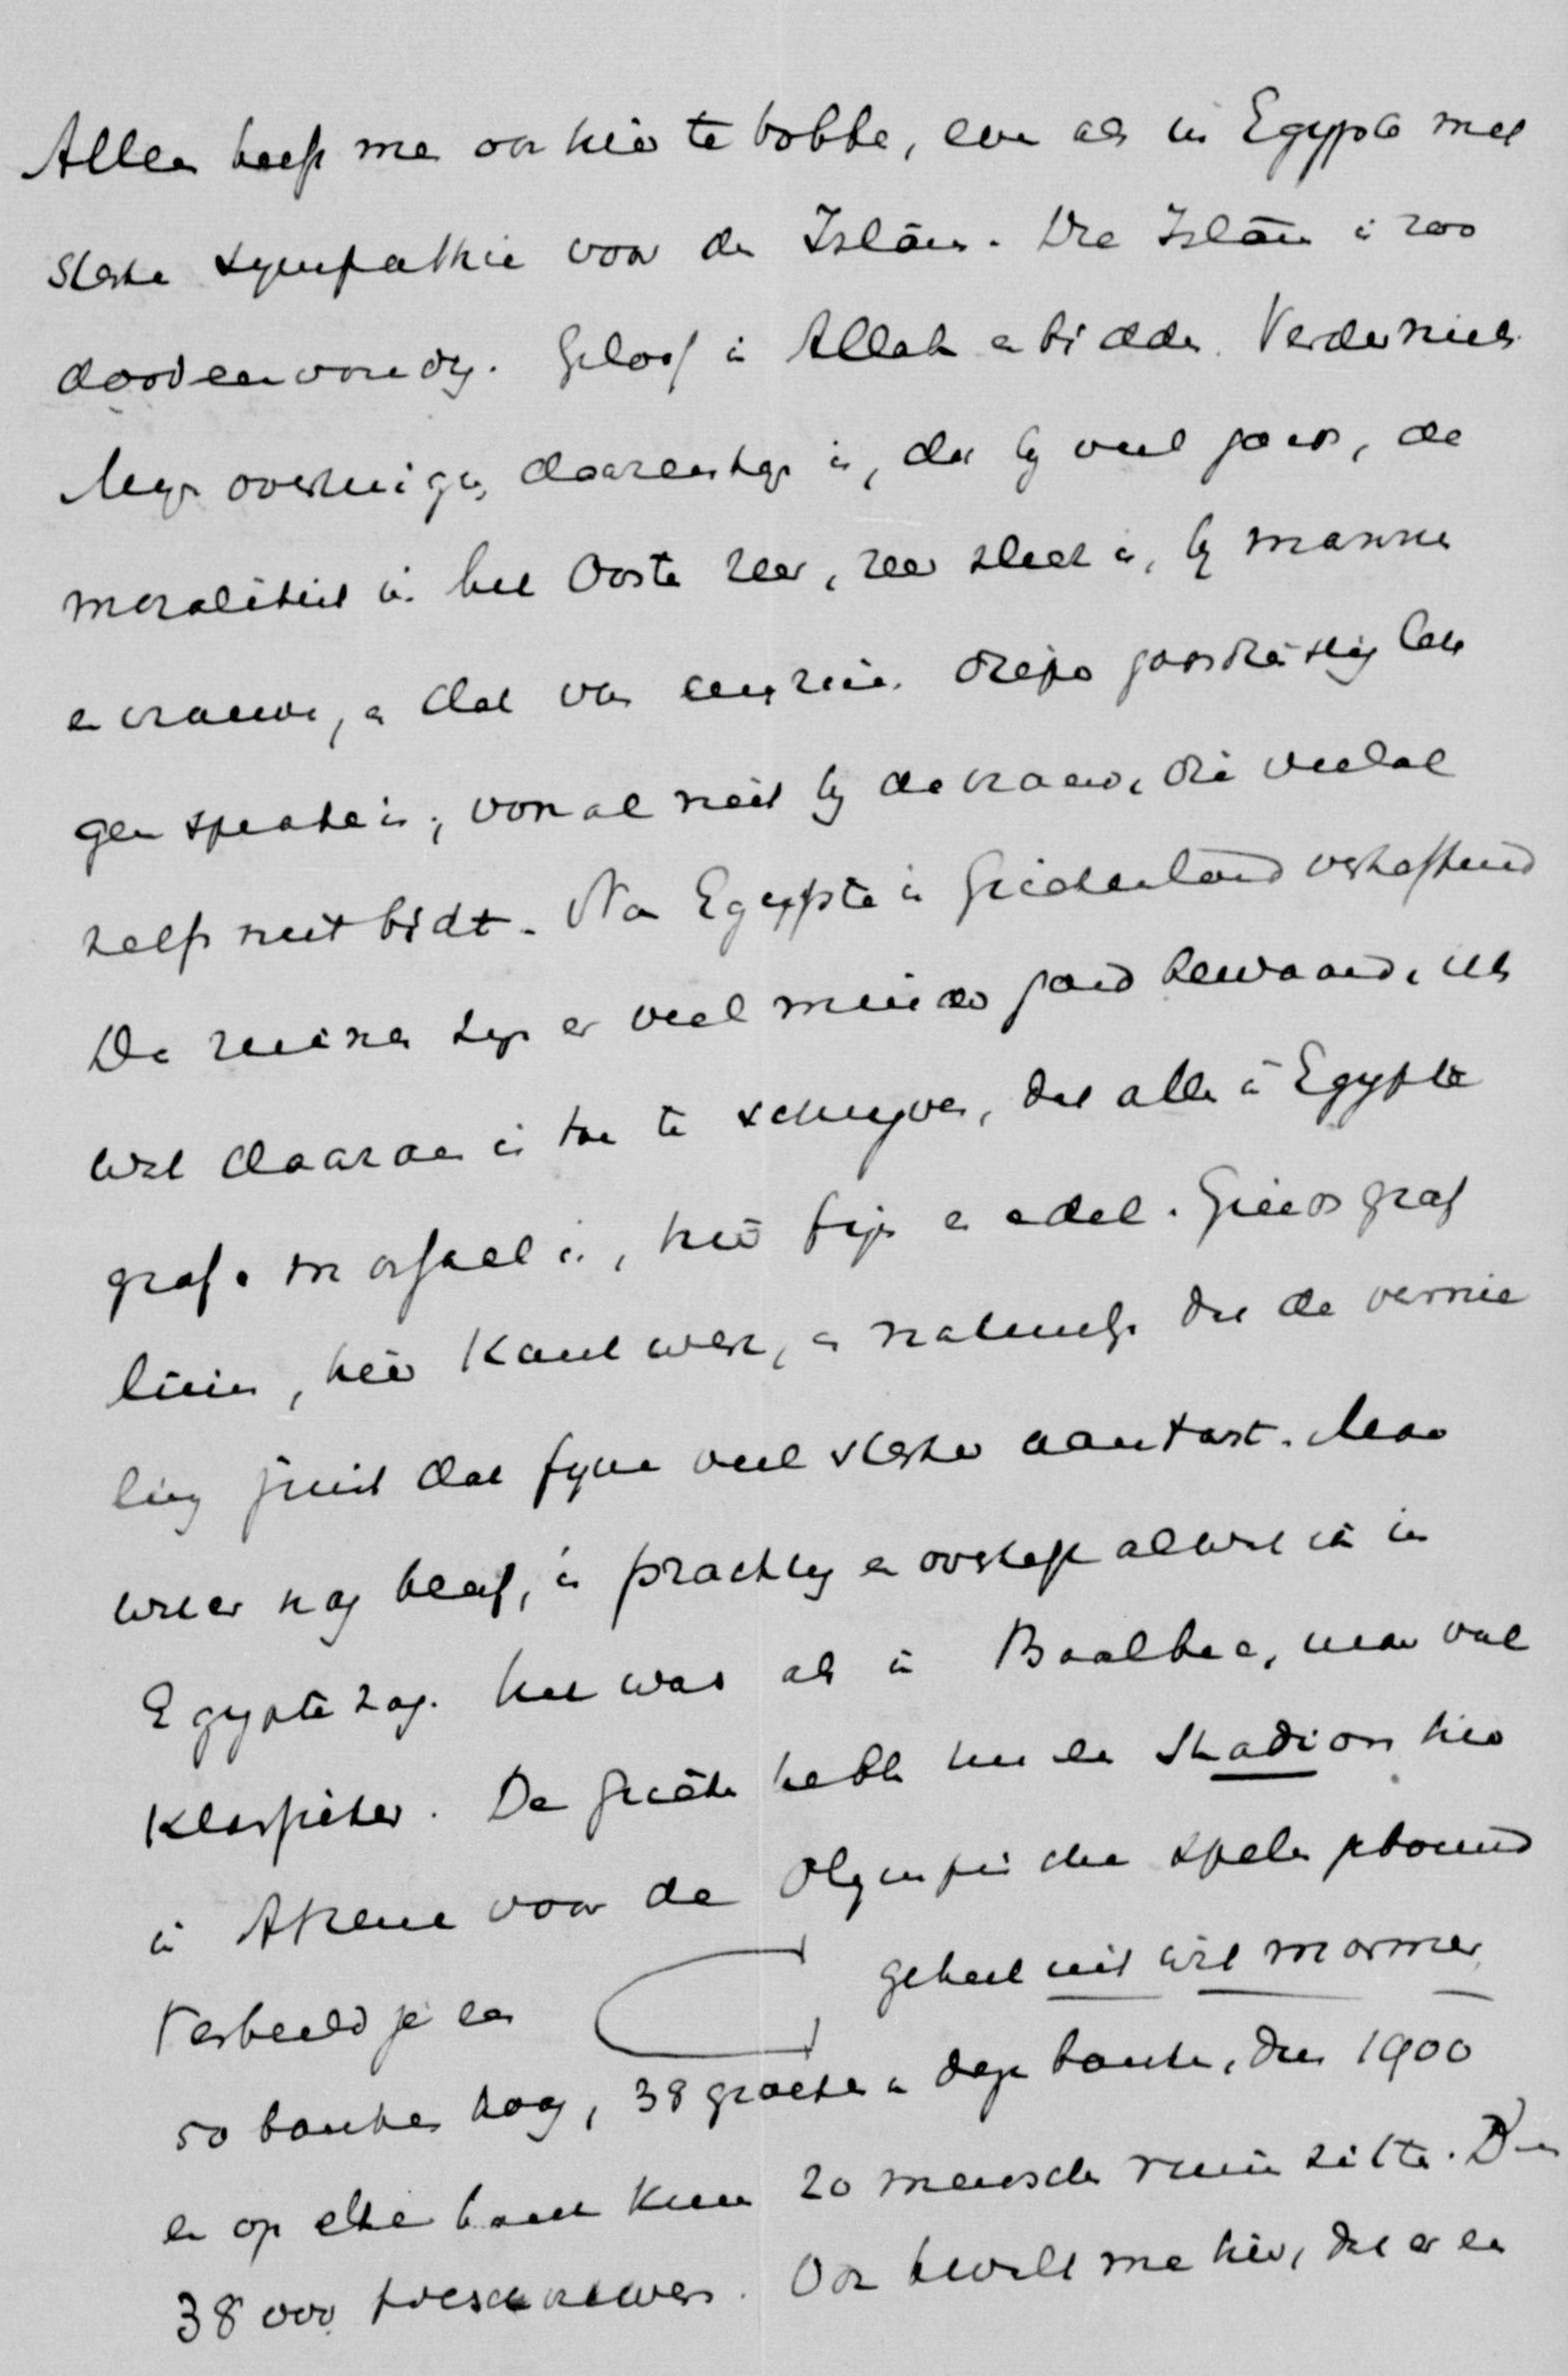 Allen heeft me ook hier te bobbe, even als in Egypte met
sterke sympathie voor de Islām. Die Islām is zoo
doodeenvoudig. Geloof in Allah en bidden. Verder niets.
Mijn overtuiging daarentegen is, dat bij veel goeds, de
moraliteit in het Oosten zeer, zeer slecht is, bij mannen
en vrouwen, en dat van een rein, diepe godsdienstig leven
geen sprake is, vooral niet bij de vrouw, die veelal
zelfs niet bidt. Na Egypte is Griekenland verheffend
De ruines zijn er veel minder goed bewaard, iets
wat daaraan is toe te schrijven, dat alles in Egypte
graf. massaal is, hier fijn en edel. Ginds graf
hier Kantwerk, en natuurlijk dat de vernie
ling juist dat fijne veel sterker aantast. Maar
wat er nog bleef, is prachtig en overtreft al wat ik in
Egypte zag. Het was als in Baalbec, maar veel
Klassieker. De Grieken hebben nu een Stadion hier
in Athene voor de Olympische spelen gebouwd
Verbeeld je een geheel uit wit marmer
50 banken hoog, 38 groote en diepe banken, dus 1900
en op elke bank kunnen 20 menschen ruim zitten. Dus
38000 toeschouwers. Ook bevalt me hier, dat er een